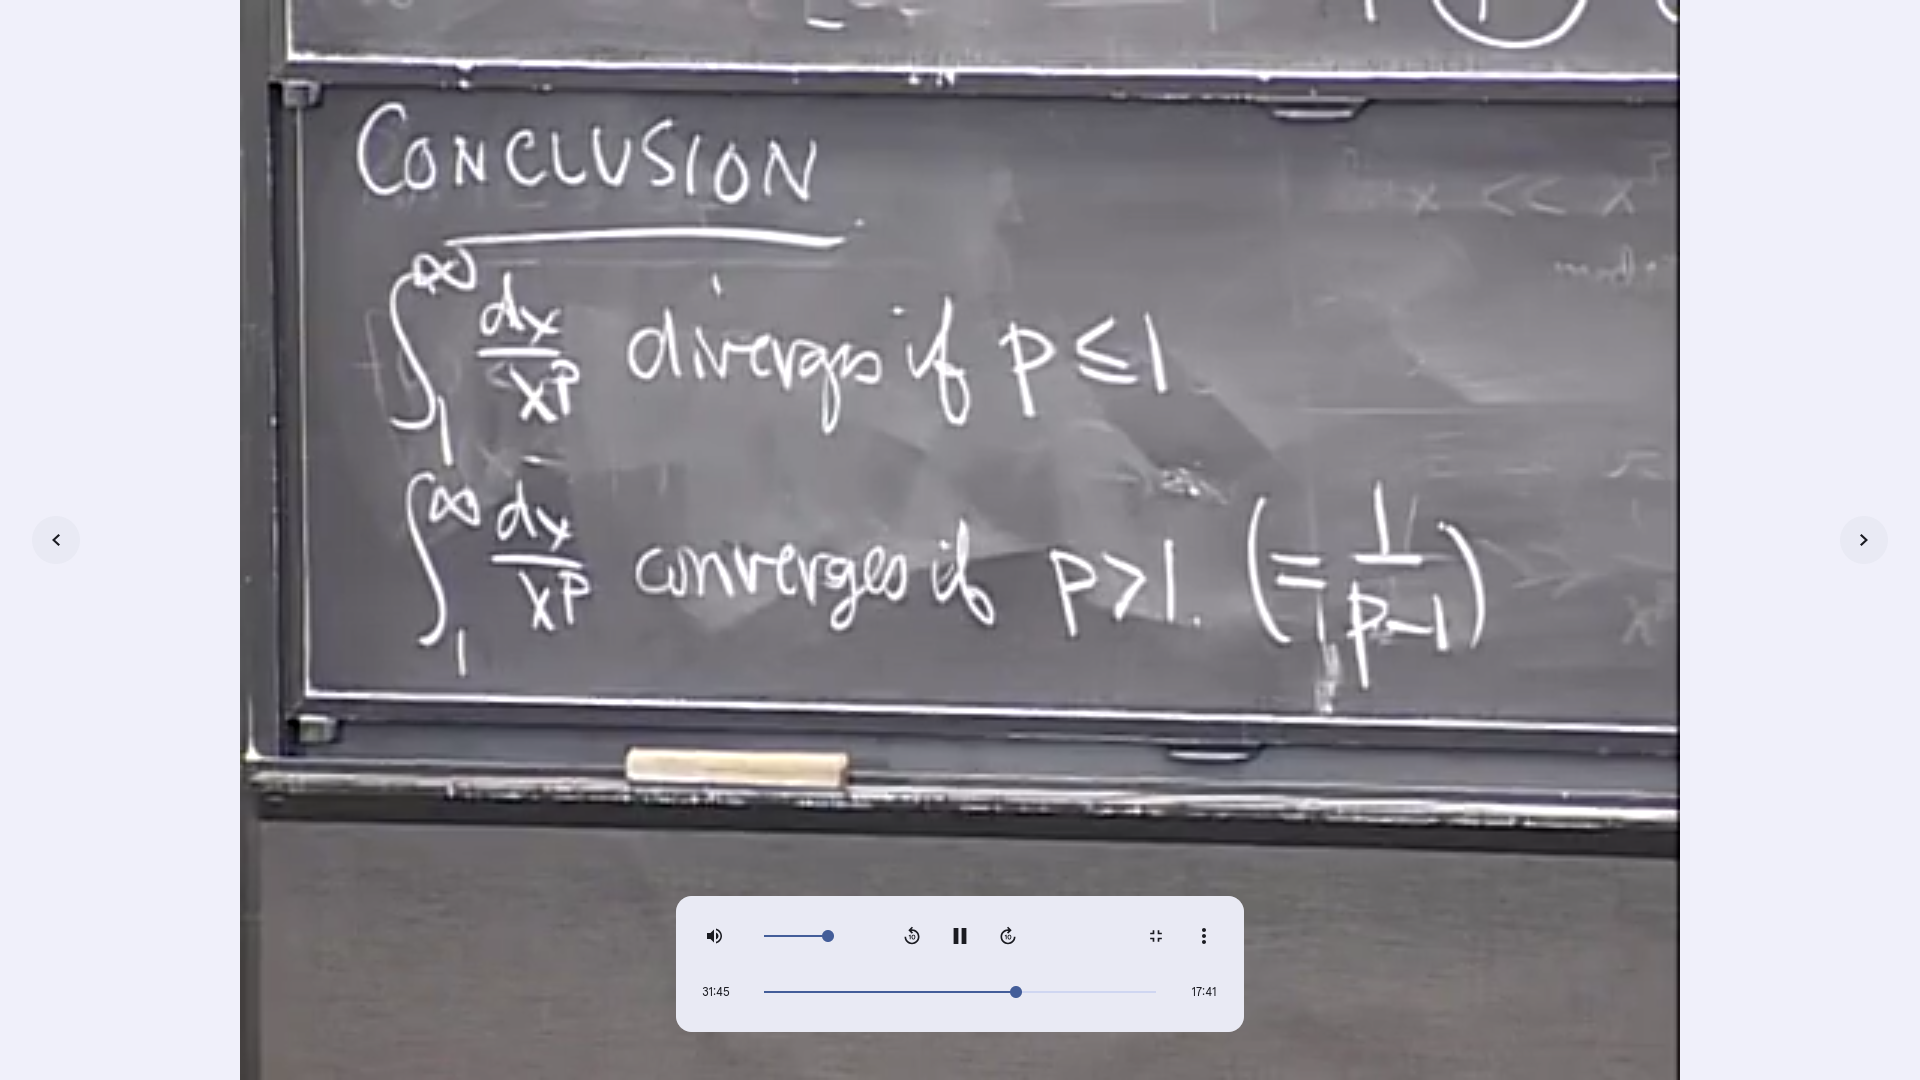 CONCLUSION
∫₁^∞ dx/x^p diverges if p ≤ 1
∫₁^∞ dx/x^p converges if p > 1. (= 1/(p-1))
31:45 17:41